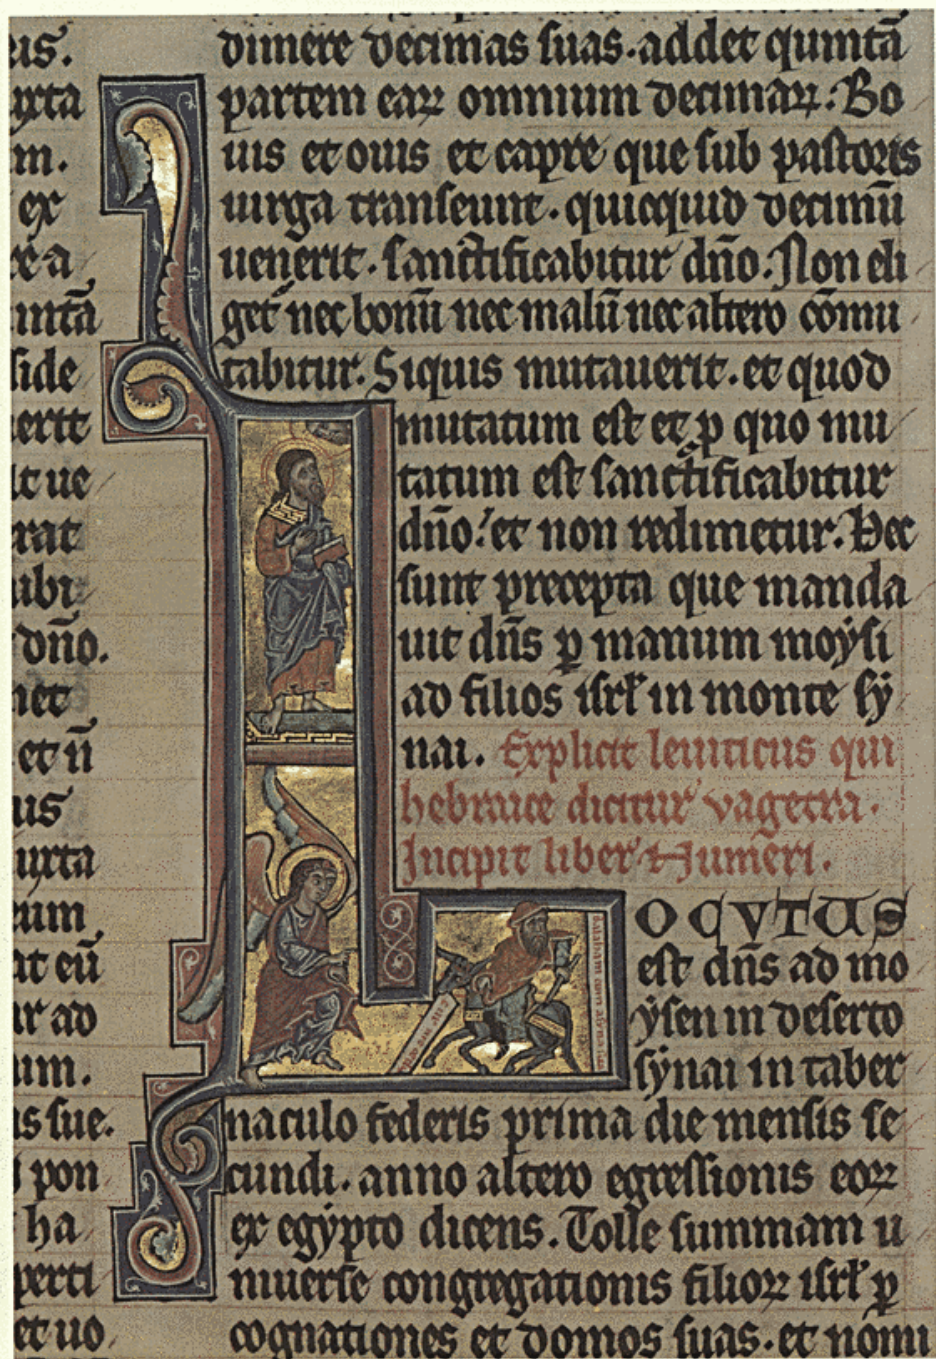 us.
uxta
m.
ex
te a
untā
side
erit
it ue
rat
ubi
dn̄o.
net
et n̄
us
iuxta
eum
at eū
ur ad
um.
is sue.
pon
ha
perti
et uo
dimere decimas suas. addet quintā
partem eaꝝ omnium decimaꝝ. Bo
uis et ouis et capre que sub pastoris
uirga transeunt. quicquid decimū
uenerit. sanctificabitur dn̄o. Non eli
get᷑ nec bonū nec malū nec altero cōmu
tabitur. Siquis mutauerit. et quod
mutatum est et p quo mu
tatum est sanctificabitur
dn̄o. et non redimetur. Hec
sunt precepta que manda
uit dn̄s ꝑ manum moẏsi
ad filios isrł in monte sẏ
nai. Explicit leuiticus qui
hebraice dicitur vagecra.
Incipit liber Numeri.
OCVTUS
est dn̄s ad mo
ẏsen in deserto
sẏnai in taber
naculo federis prima die mensis se
cundi. anno altero egressionis eoꝝ
ex egẏpto dicens. Tolle summam u
niuerse congregationis filioꝝ isrł ꝑ
cognationes et domos suas. et nomi